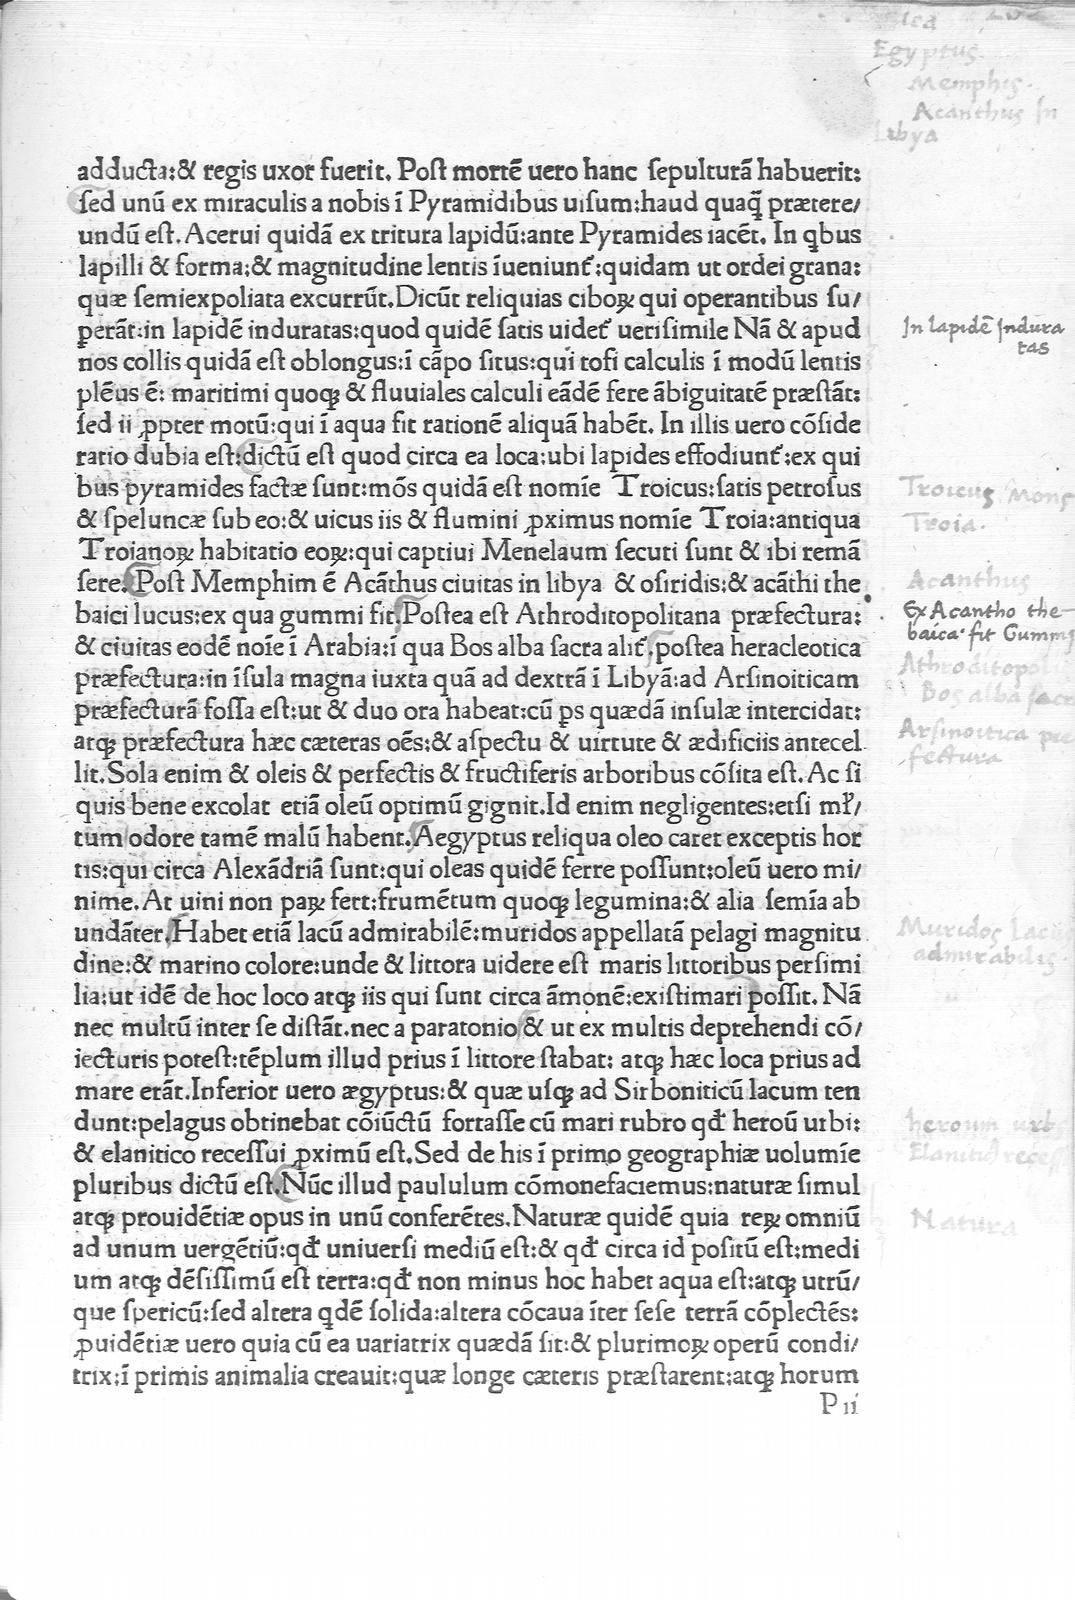 Egyptus.
Memphis.
Acanthus In
Libya
adducta:& regis uxor fuerit. Post mortē uero hanc sepulturā habuerit:
sed unū ex miraculis a nobis ī Pyramidibus uisum:haud quaq̄ prætere/
undū est. Acerui quidā ex tritura lapidū:ante Pyramides iacēt. In qbus
lapilli & forma:& magnitudine lentis īueniunt᷑:quidam ut ordei grana:
quæ semiexpoliata excurrūt.Dicūt reliquias ciboꝝ qui operantibus su/
perāt:in lapidē induratas:quod quidē satis uidet᷑ uerisimile Nā & apud
nos collis quidā est oblongus:ī cāpo situs:qui tofi calculis ī modū lentis
plēus ē: maritimi quoqꝫ & fluuiales calculi eādē fere ābiguitatē præstāt:
sed ii ꝓpter motū:qui ī aqua fit rationē aliquā habēt. In illis uero cōside
ratio dubia est:dictū est quod circa ea loca:ubi lapides effodiunt᷑:ex qui
bus pyramides factæ sunt:mōs quidā est nomīe Troicus:satis petrosus
& speluncæ sub eo:& uicus iis & flumini ꝓximus nomīe Troia:antiqua
Troianoꝝ habitatio eoꝝ:qui captiui Menelaum secuti sunt & ibi remā
sere. Post Memphim ē Acāthus ciuitas in libya & osiridis:& acāthi the
baici lucus:ex qua gummi fit.Postea est Athroditopolitana præfectura:
& ciuitas eodē noīe ī Arabia:ī qua Bos alba sacra alit᷑.postea heracleotica
præfectura:in īsula magna iuxta quā ad dextrā ī Libyā:ad Arsinoiticam
præfecturā fossa est:ut & duo ora habeat:cū ꝑs quædā insulæ intercidat:
atqꝫ præfectura hæc cæteras oēs:& aspectu & uirtute & ædificiis antecel
lit.Sola enim & oleis & perfectis & fructiferis arboribus cōsita est. Ac si
quis bene excolat etiā oleū optimū gignit.Id enim negligentes:etsi mł/
tum odore tamē malū habent.Aegyptus reliqua oleo caret exceptis hor
tis:qui circa Alexādriā sunt:qui oleas quidē ferre possunt:oleū uero mi/
nime. At uini non paꝝ fert:frumētum quoqꝫ legumina:& alia semīa ab
undāter.Habet etiā lacū admirabilē:muridos appellatā pelagi magnitu
dine:& marino colore:unde & littora uidere est maris littoribus persimi
lia:ut idē de hoc loco atqꝫ iis qui sunt circa āmonē:existimari possit. Nā
nec multū inter se distāt.nec a paratonio & ut ex multis deprehendi cō/
iecturis potest:tēplum illud prius ī littore stabat: atqꝫ hæc loca prius ad
mare erāt.Inferior uero ægyptus:& quæ usqꝫ ad Sirboniticū lacum ten
dunt:pelagus obtinebat cōiūctū fortasse cū mari rubro qđ heroū urbi:
& elanitico recessui ꝓximū est.Sed de his ī primo geographiæ uolumīe
pluribus dictū est.Nūc illud paululum cōmonefaciemus:naturæ simul
atqꝫ prouidētiæ opus in unū conferētes.Naturæ quidē quia reꝝ omniū
ad unum uergētiū:qđ uniuersi mediū est:& qđ circa id positū est:medi
um atqꝫ dēsissimū est terra:qđ non minus hoc habet aqua est:atqꝫ utrū/
que spericū:sed altera qdē solida:altera cōcaua īter sese terrā cōplectēs:
ꝓuidētiæ uero quia cū ea uariatrix quædā sit:& plurimoꝝ operū condi/
trix:ī primis animalia creauit:quæ longe cæteris præstarent:atqꝫ horum
P ii
In lapidē Indura
tas
Troicus Mons
Troia.
Acanthus
Ex Acantho the-
baica fit Gummj
Athroditopoli
Bos alba sacr
Arsinoitica pre
fectura
Muridos Lacus
admirabilis.
heroum urbs
Elanitici recess
Natura